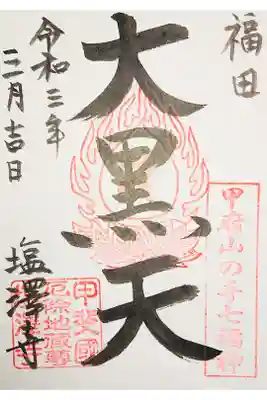 福田
甲府山の手七福神
大黒天
甲斐國
厄除地蔵尊
令和三年
三月吉日
塩澤寺